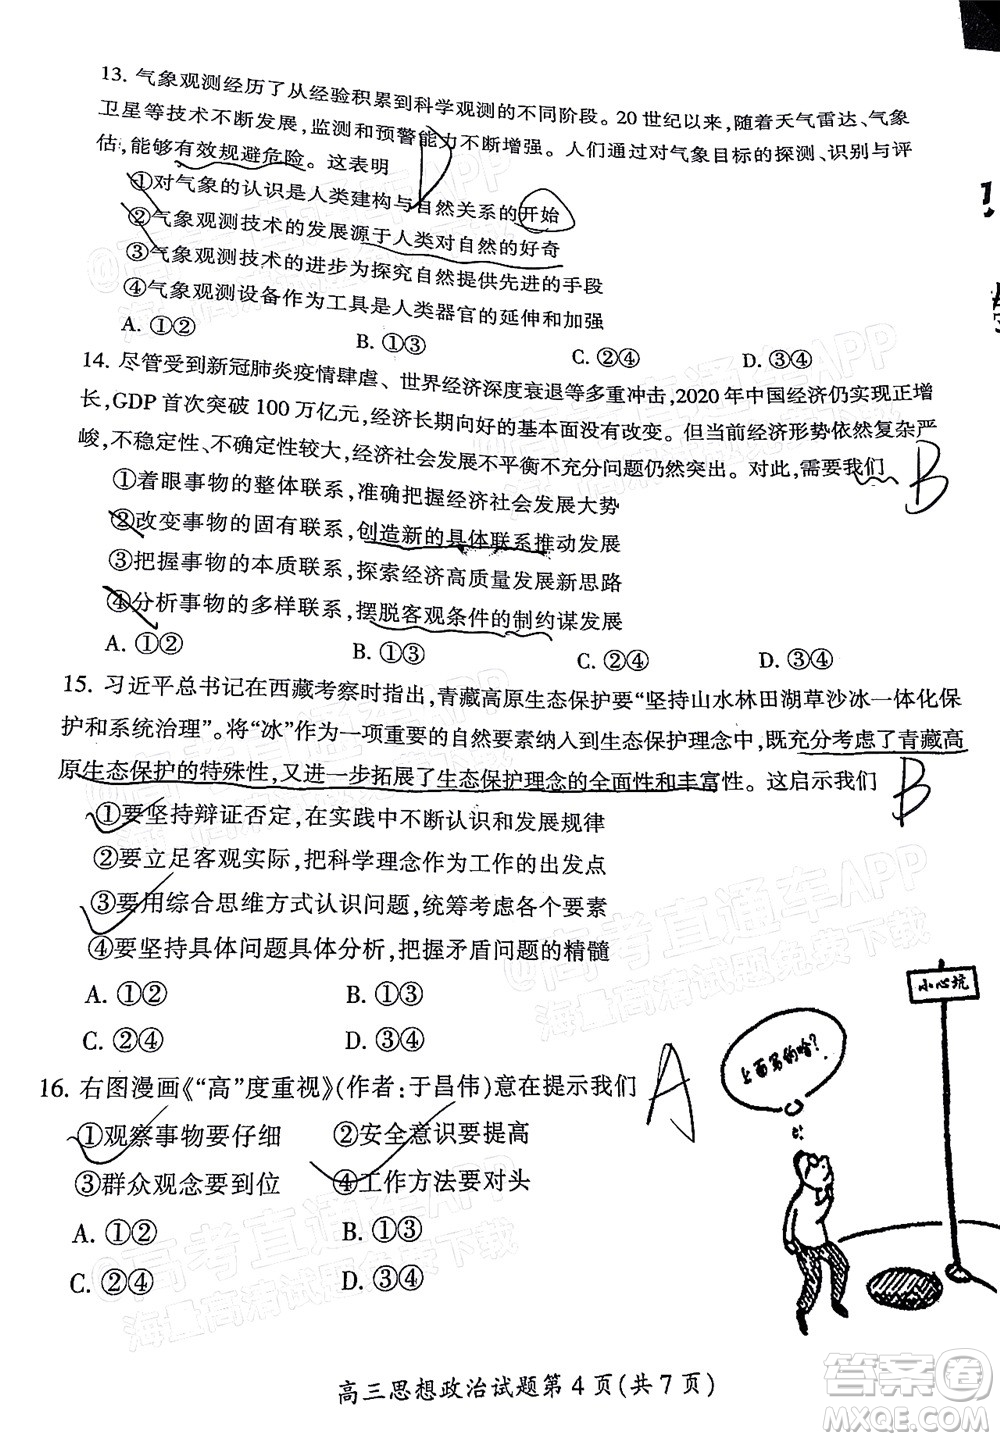 13. 气象观测经历了从经验积累到科学观测的不同阶段。20 世纪以来,随着天气雷达、气象
卫星等技术不断发展,监测和预警能力不断增强。人们通过对气象目标的探测、识别与评
估,能够有效规避危险。这表明
①对气象的认识是人类建构与自然关系的开始
②气象观测技术的发展源于人类对自然的好奇
③气象观测技术的进步为探究自然提供先进的手段
④气象观测设备作为工具是人类器官的延伸和加强
A. ①② B. ①③ C. ②④ D. ③④
14. 尽管受到新冠肺炎疫情肆虐、世界经济深度衰退等多重冲击,2020 年中国经济仍实现正增
长,GDP 首次突破 100 万亿元,经济长期向好的基本面没有改变。但当前经济形势依然复杂严
峻,不稳定性、不确定性较大,经济社会发展不平衡不充分问题仍然突出。对此,需要我们
B
①着眼事物的整体联系,准确把握经济社会发展大势
②改变事物的固有联系,创造新的具体联系推动发展
③把握事物的本质联系,探索经济高质量发展新思路
④分析事物的多样联系,摆脱客观条件的制约谋发展
A. ①② B. ①③ C. ②④ D. ③④
15. 习近平总书记在西藏考察时指出,青藏高原生态保护要“坚持山水林田湖草沙冰一体化保
护和系统治理”。将“冰”作为一项重要的自然要素纳入到生态保护理念中,既充分考虑了青藏高
原生态保护的特殊性,又进一步拓展了生态保护理念的全面性和丰富性。这启示我们
B
①要坚持辩证否定,在实践中不断认识和发展规律
②要立足客观实际,把科学理念作为工作的出发点
③要用综合思维方式认识问题,统筹考虑各种要素
④要坚持具体问题具体分析,把握矛盾问题的精髓
A. ①② B. ①③
C. ②④ D. ③④
16. 右图漫画《“高”度重视》(作者:于昌伟)意在提示我们
A
①观察事物要仔细 ②安全意识要提高
③群众观念要到位 ④工作方法要对头
A. ①② B. ①③
C. ②④ D. ③④
小心坑
上面写的啥?
高三思想政治试题第 4 页(共 7 页)
@高考直通车APP
海量高清试题免费下载
答案圈
MXQE.COM